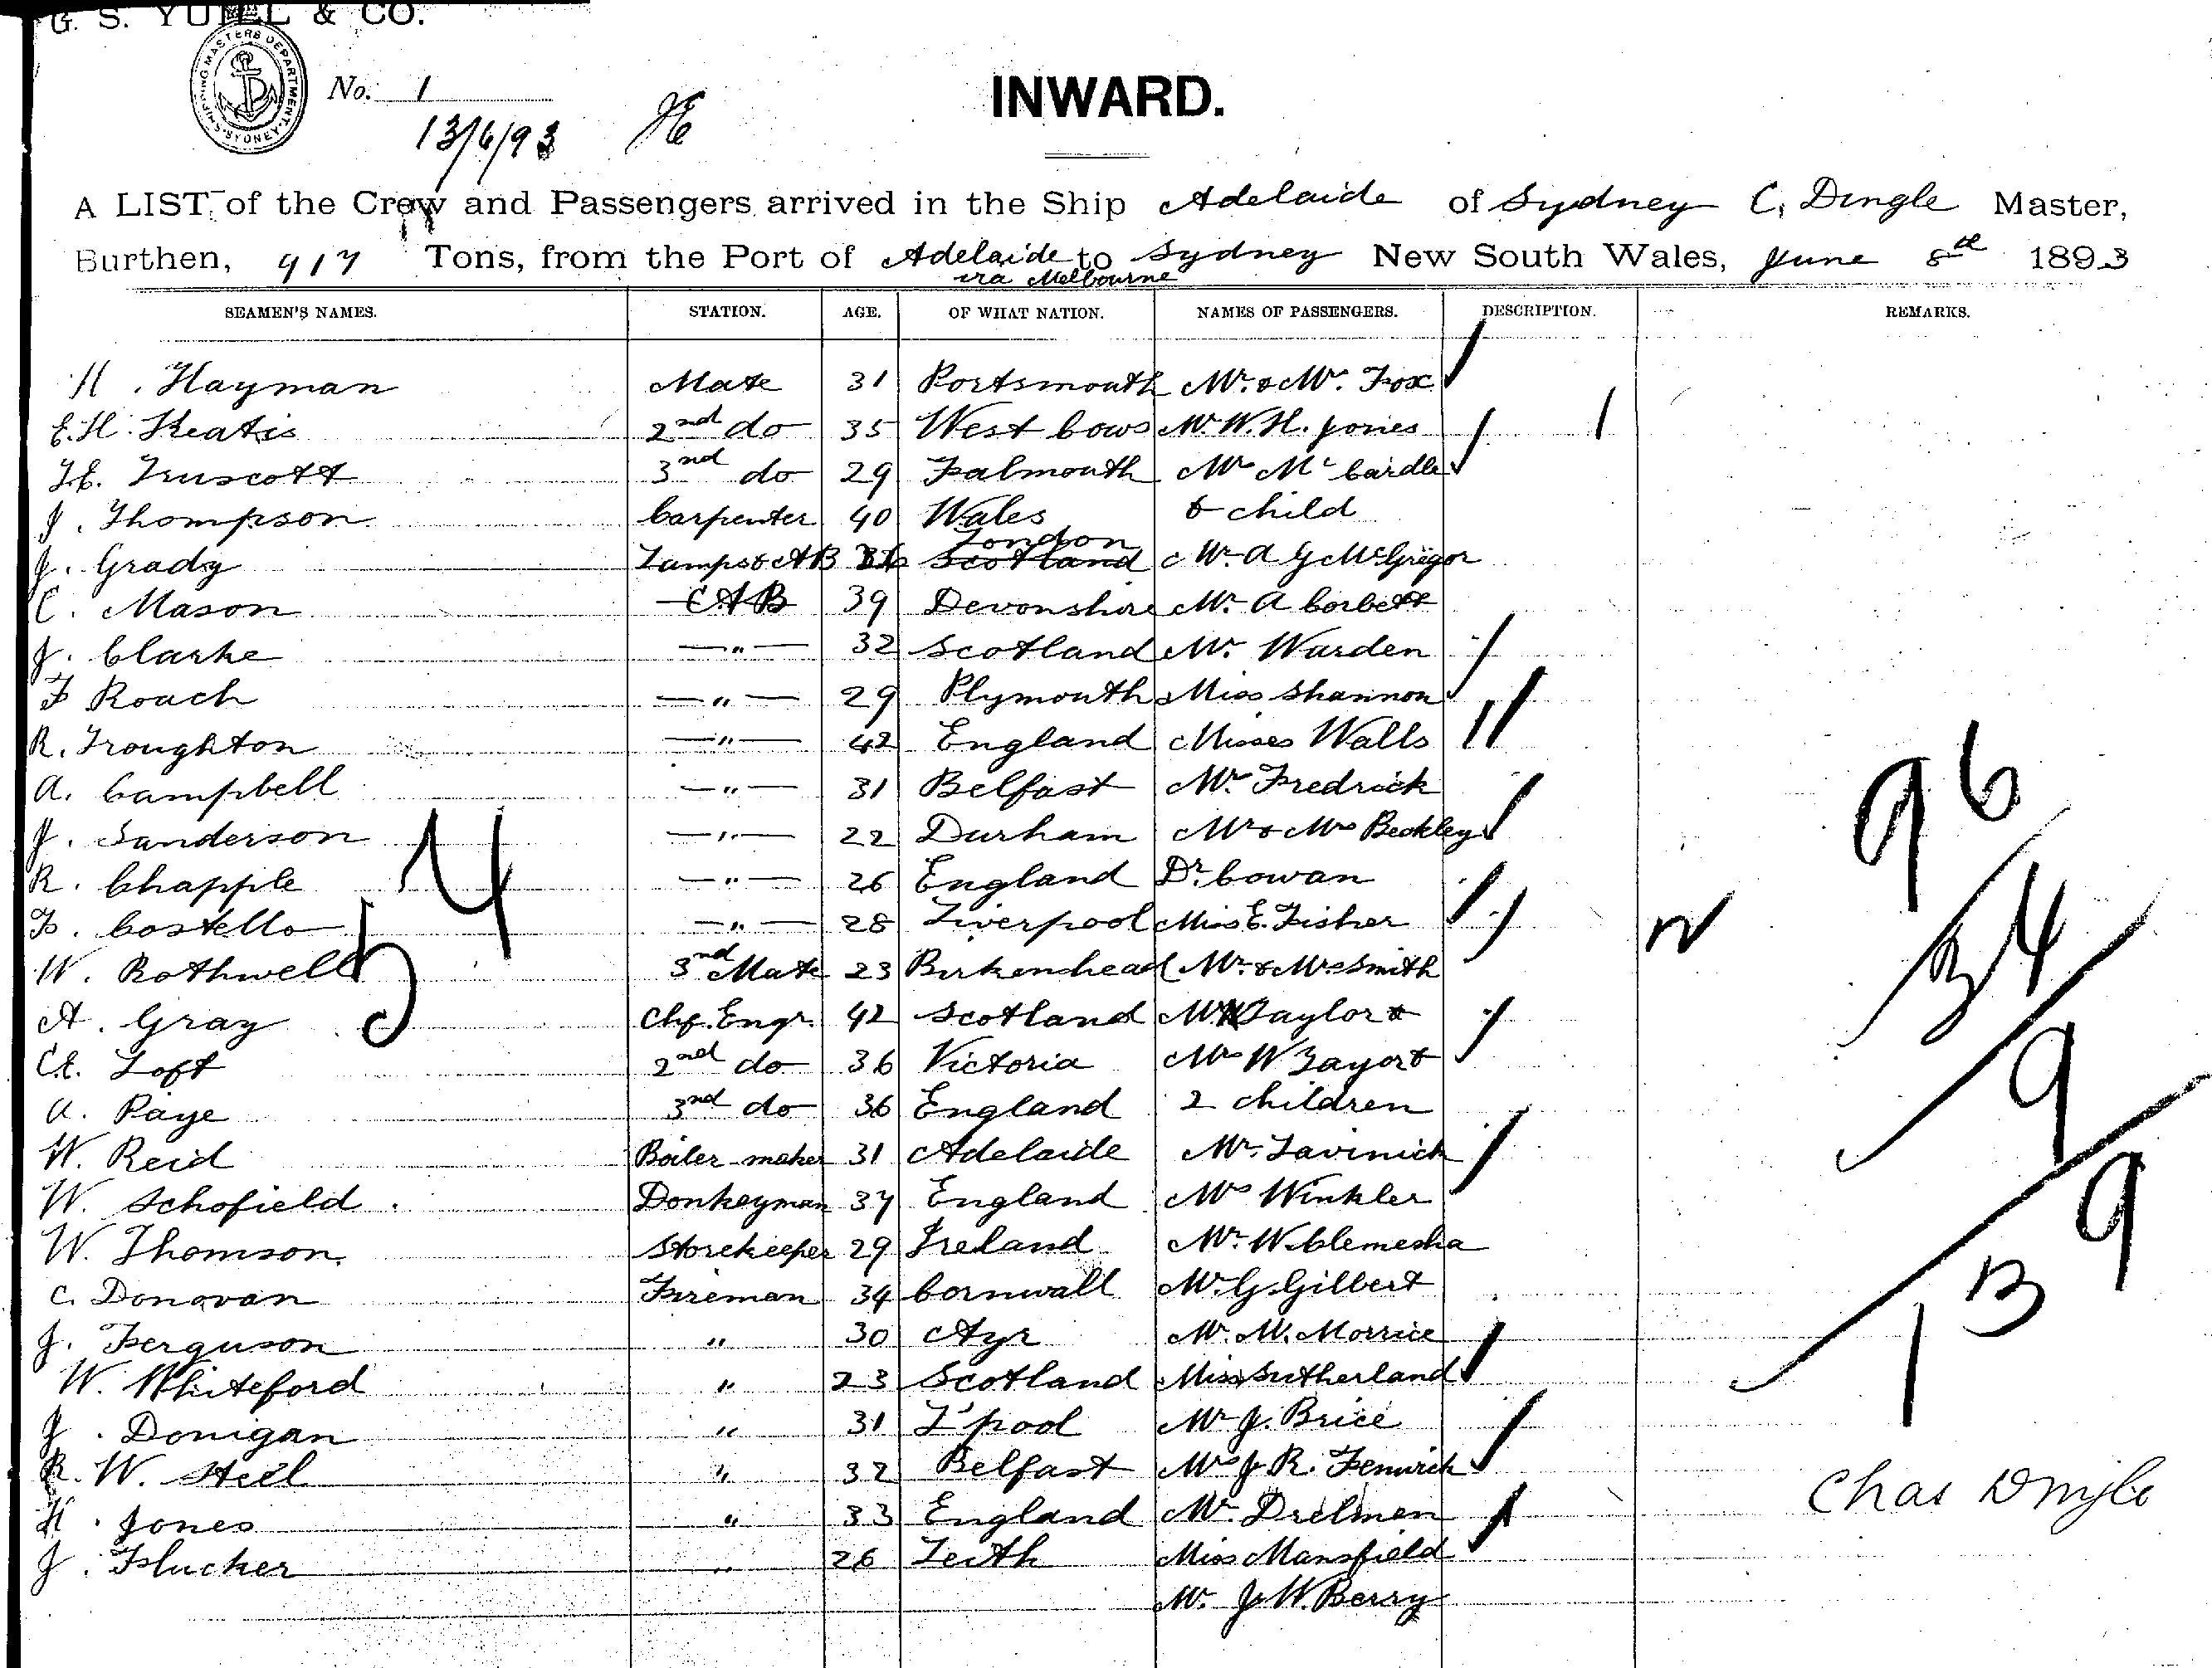 G. S. YUILL & CO.
SHIPPING MASTERS DEPARTMENT SYDNEY
No. 1
13/6/93
INWARD.
A LIST of the Crew and Passengers arrived in the Ship Adelaide of Sydney C. Dingle Master,
Burthen, 917 Tons, from the Port of Adelaide to Sydney New South Wales, June 8th 1893
via Melbourne
SEAMEN'S NAMES. STATION. AGE. OF WHAT NATION. NAMES OF PASSENGERS. DESCRIPTION. REMARKS.
H. Hayman Mate 31 Portsmouth Mr. & Mrs. Fox
E.H. Keatis 2nd do 35 West Cows Mr W.H. Jones
T.E. Truscott 3rd do 29 Falmouth Mrs Mc Cardle
J. Thompson Carpenter 40 Wales & child
J. Grady Lamps & AB 36 London Scotland Mr. A G McGregor
C. Mason AB 39 Devonshire Mr. A Corbett
J. Clarke —"— 32 Scotland Mr. Warden
F Roach —"— 29 Plymouth Miss Shannon
R. Troughton —"— 42 England Misses Walls
A. Campbell —"— 31 Belfast Mr. Fredrick
J. Sanderson —"— 22 Durham Mr & Mrs Beckley
R. Chapple —"— 26 England Dr. Cowan
F. Costello —"— 28 Liverpool Miss E. Fisher
W. Rothwell 3rd Mate 23 Birkenhead Mr. & Mrs Smith
A. Gray Chf. Engr. 42 Scotland Taylor &
C.E. Loft 2nd do 36 Victoria Mrs W Tayor &
A. Paye 3rd do 36 England 2 children
W. Reid Boiler maker 31 Adelaide Mr. Lavinick
W. Schofield Donkeyman 37 England Mrs Winkler
W. Thomson Storekeeper 29 Ireland Mr. W. Clemesha
C. Donovan Fireman 34 Cornwall Mr. G. Gilbert
J. Ferguson " 30 Ayr Mr. W. Morrice
W. Whiteford " 23 Scotland Miss Sutherland
J. Donigan " 31 L'pool Mr J. Brice
R. W. Steel " 32 Belfast Mrs J. R. Fenwick
H. Jones " 33 England Mr. Drelmen
J. Flucker " 26 Leith Miss Mansfield
Mr. J. W. Berry
54
96
34
9
139
Chas Dingle